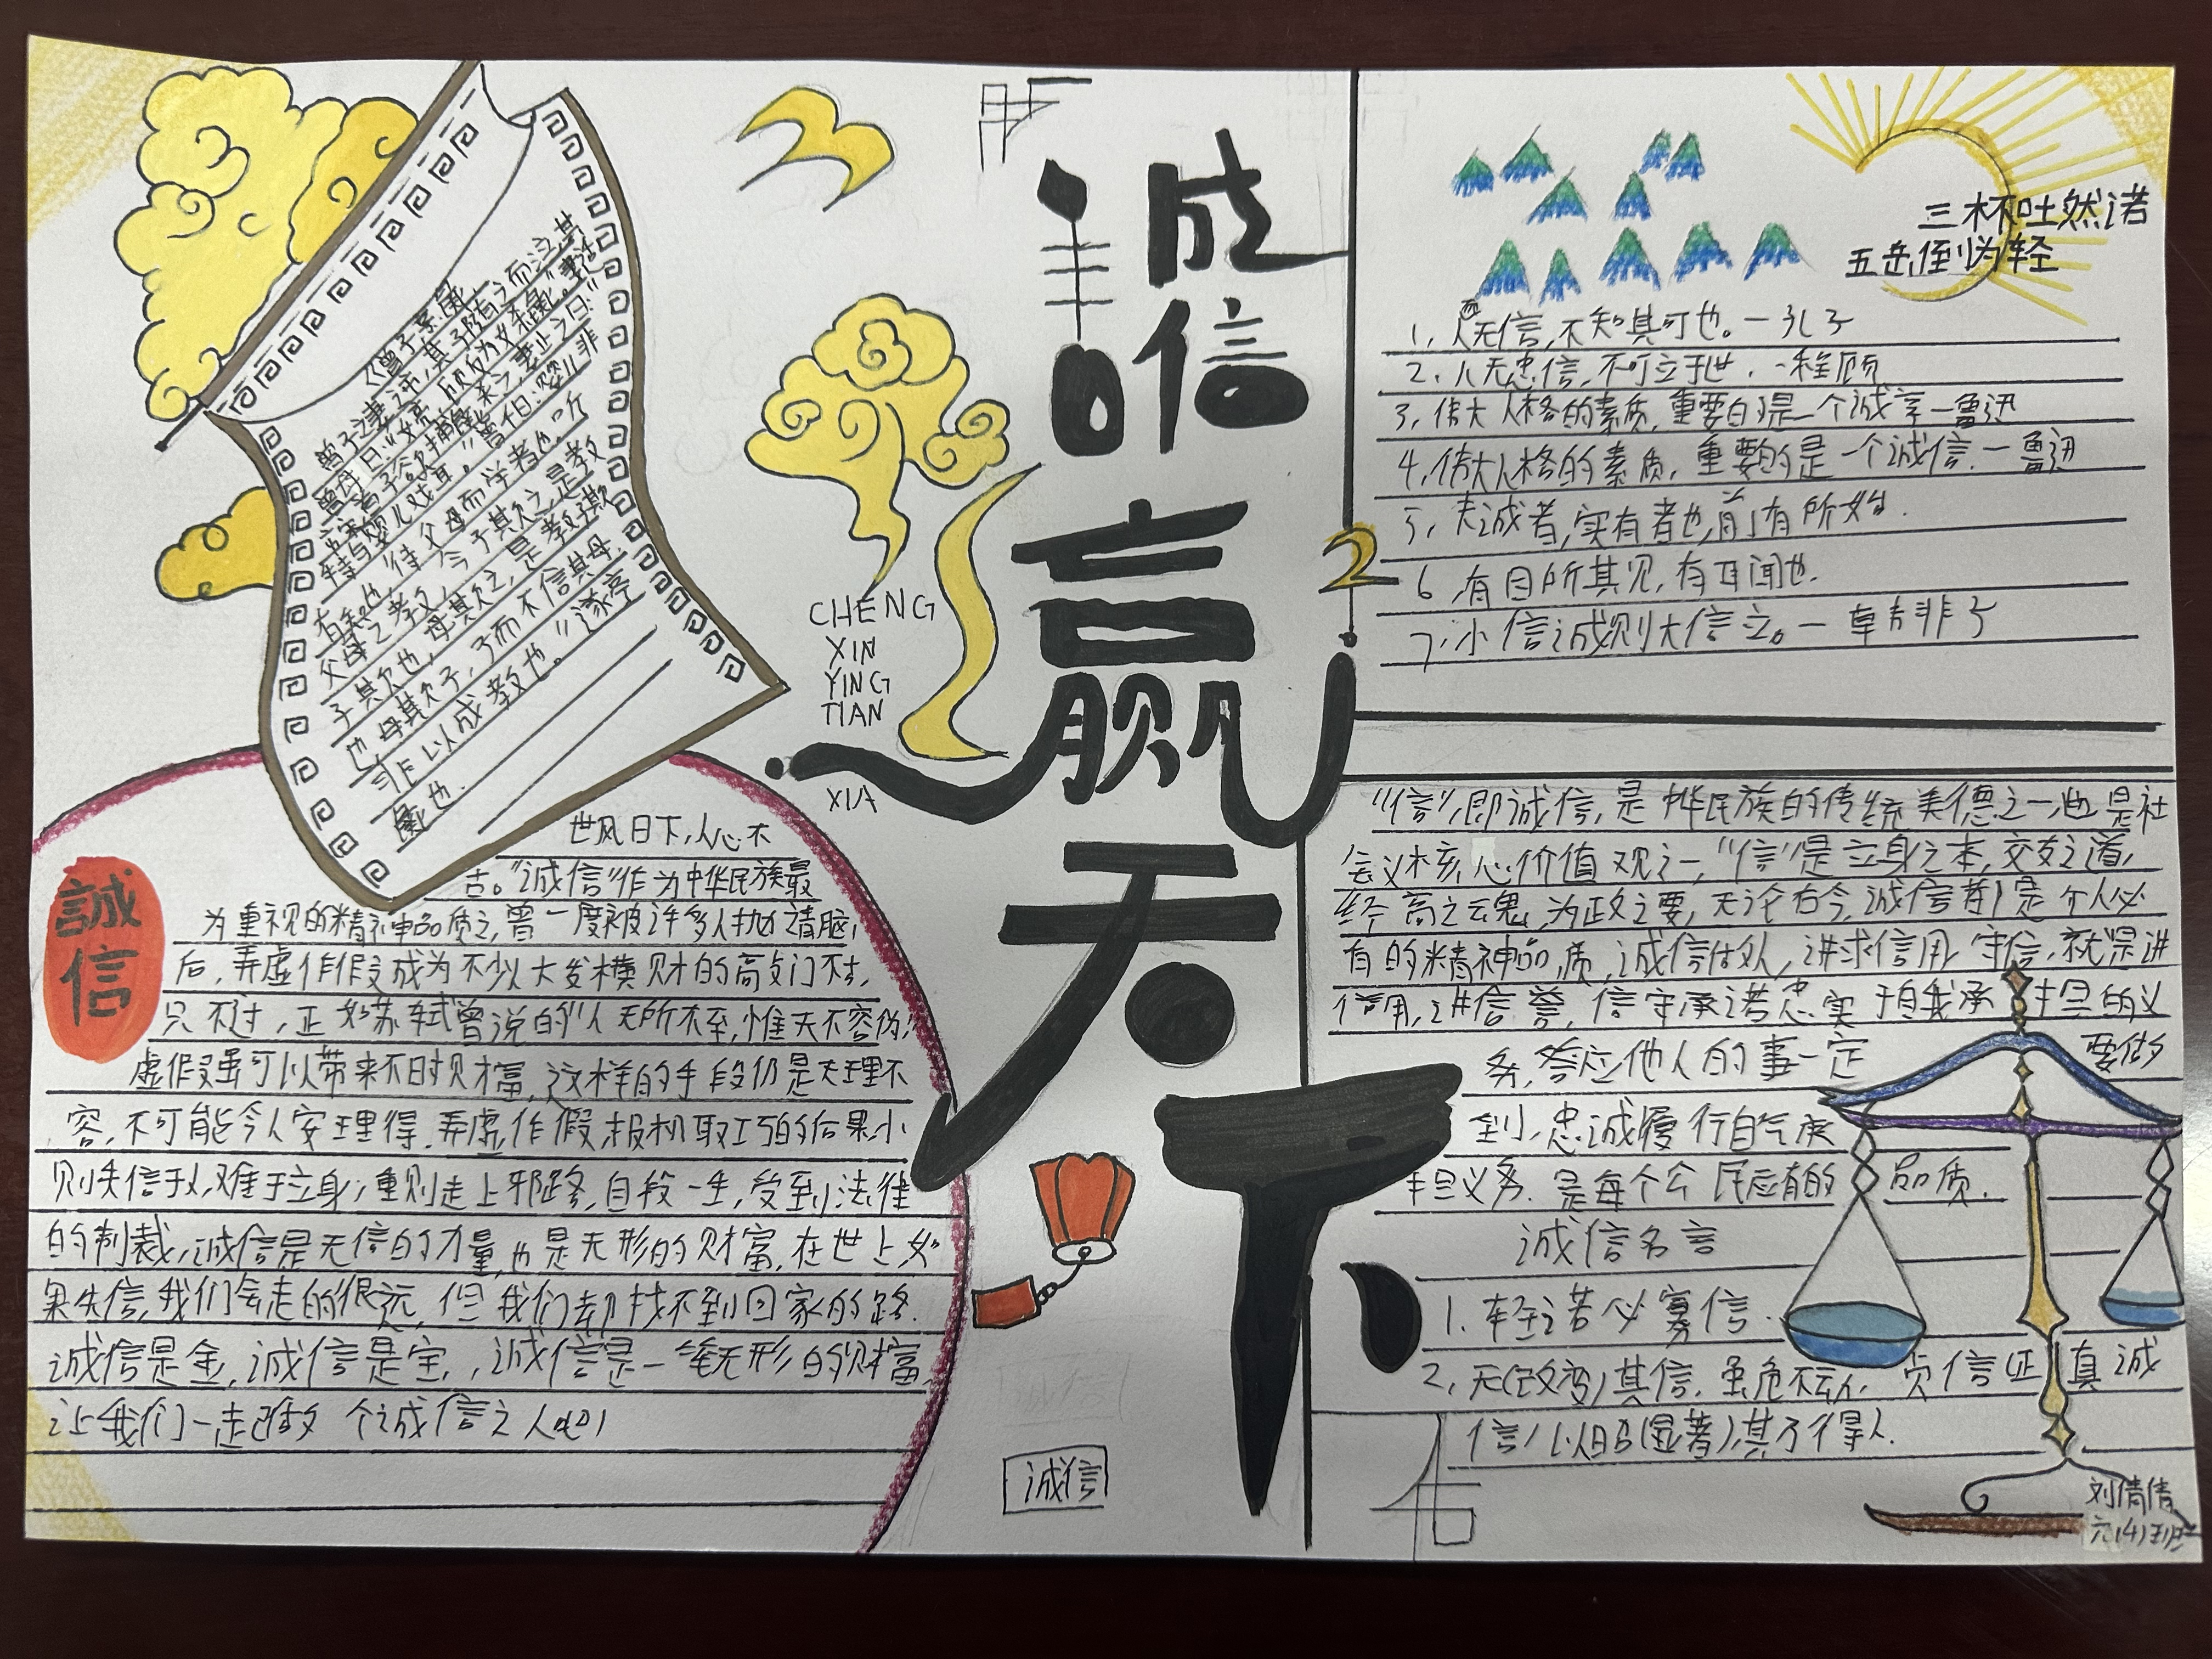 誠信赢天下
CHENG
XIN
YING
TIAN
XIA
《曾子杀彘》
曾子之妻之市,其子随之而泣,其
母曰:"女还,顾反为女杀彘。"妻适
市来,曾子欲捕彘杀之,妻止之曰:"
特与婴儿戏耳。"曾子曰:"婴儿非
有知也,待父母而学者也,听
父母之教,今子欺之,是教
子其欠也,母其欠之,是教子欺
也母其欠子,子而不信其母,
非以成教也。"遂烹
彘也.
誠
信
世风日下,人心不
古。"诚信"作为中华民族最
为重视的精神品质之,曾一度被许多人抛诸脑
后,弄虚作假变成为不少人大发横财的
只不过,正如苏轼曾说的"人无所不至,惟天不容伪,"
虚假虽可以带来不日财富,这样的手段仍是天理不
容,不可能令人安理得.弄虚作假,投机取巧的后果小
则失信于人,难于立身;重则走上邪路,自投一生,受到法律
的制裁,诚信是无信的力量,也是无形的财富,在世上如
果失信,我们会走的很远,但我们却找不到回家的路.
诚信是金,诚信是宝,诚信是一笔无形的财富,
让我们一走己做 个诚信之人吧!
诚信
三杯吐然诺
五岳倒为轻
1,人而无信,不知其可也。—孔子
2,人无忠信,不可立于世.-程颐
3,伟大人格的素质,重要的是一个诚字—鲁迅
4,伟大人格的素质,重要的是一个诚信.—鲁迅
5,夫诚者,实有者也,前有所始.
6,有目所其见,有耳闻也.
7,小信诚则大信立。—韩非子
2
"信",即诚信,是中华民族的传统美德之一也是社
会义核心价值观之一,"信"是立身之本,交友之道,
经商之魂,为政之要,无论古今,诚信都是个人必
有的精神品质,诚信做人,讲求信用,守信,就是讲
信用,讲信誉,信守承诺忠实于自我承担的义
务,答应他人的事一定要做
到,忠诚履行自气承
担义务.是每个公民应有的品质.
诚信名言
1.轻诺必寡信.
2,无(改变)其信,虽危不动,贞信证真诚
信/以昭(显著),其乃得人.
刘倩倩
六(4)班